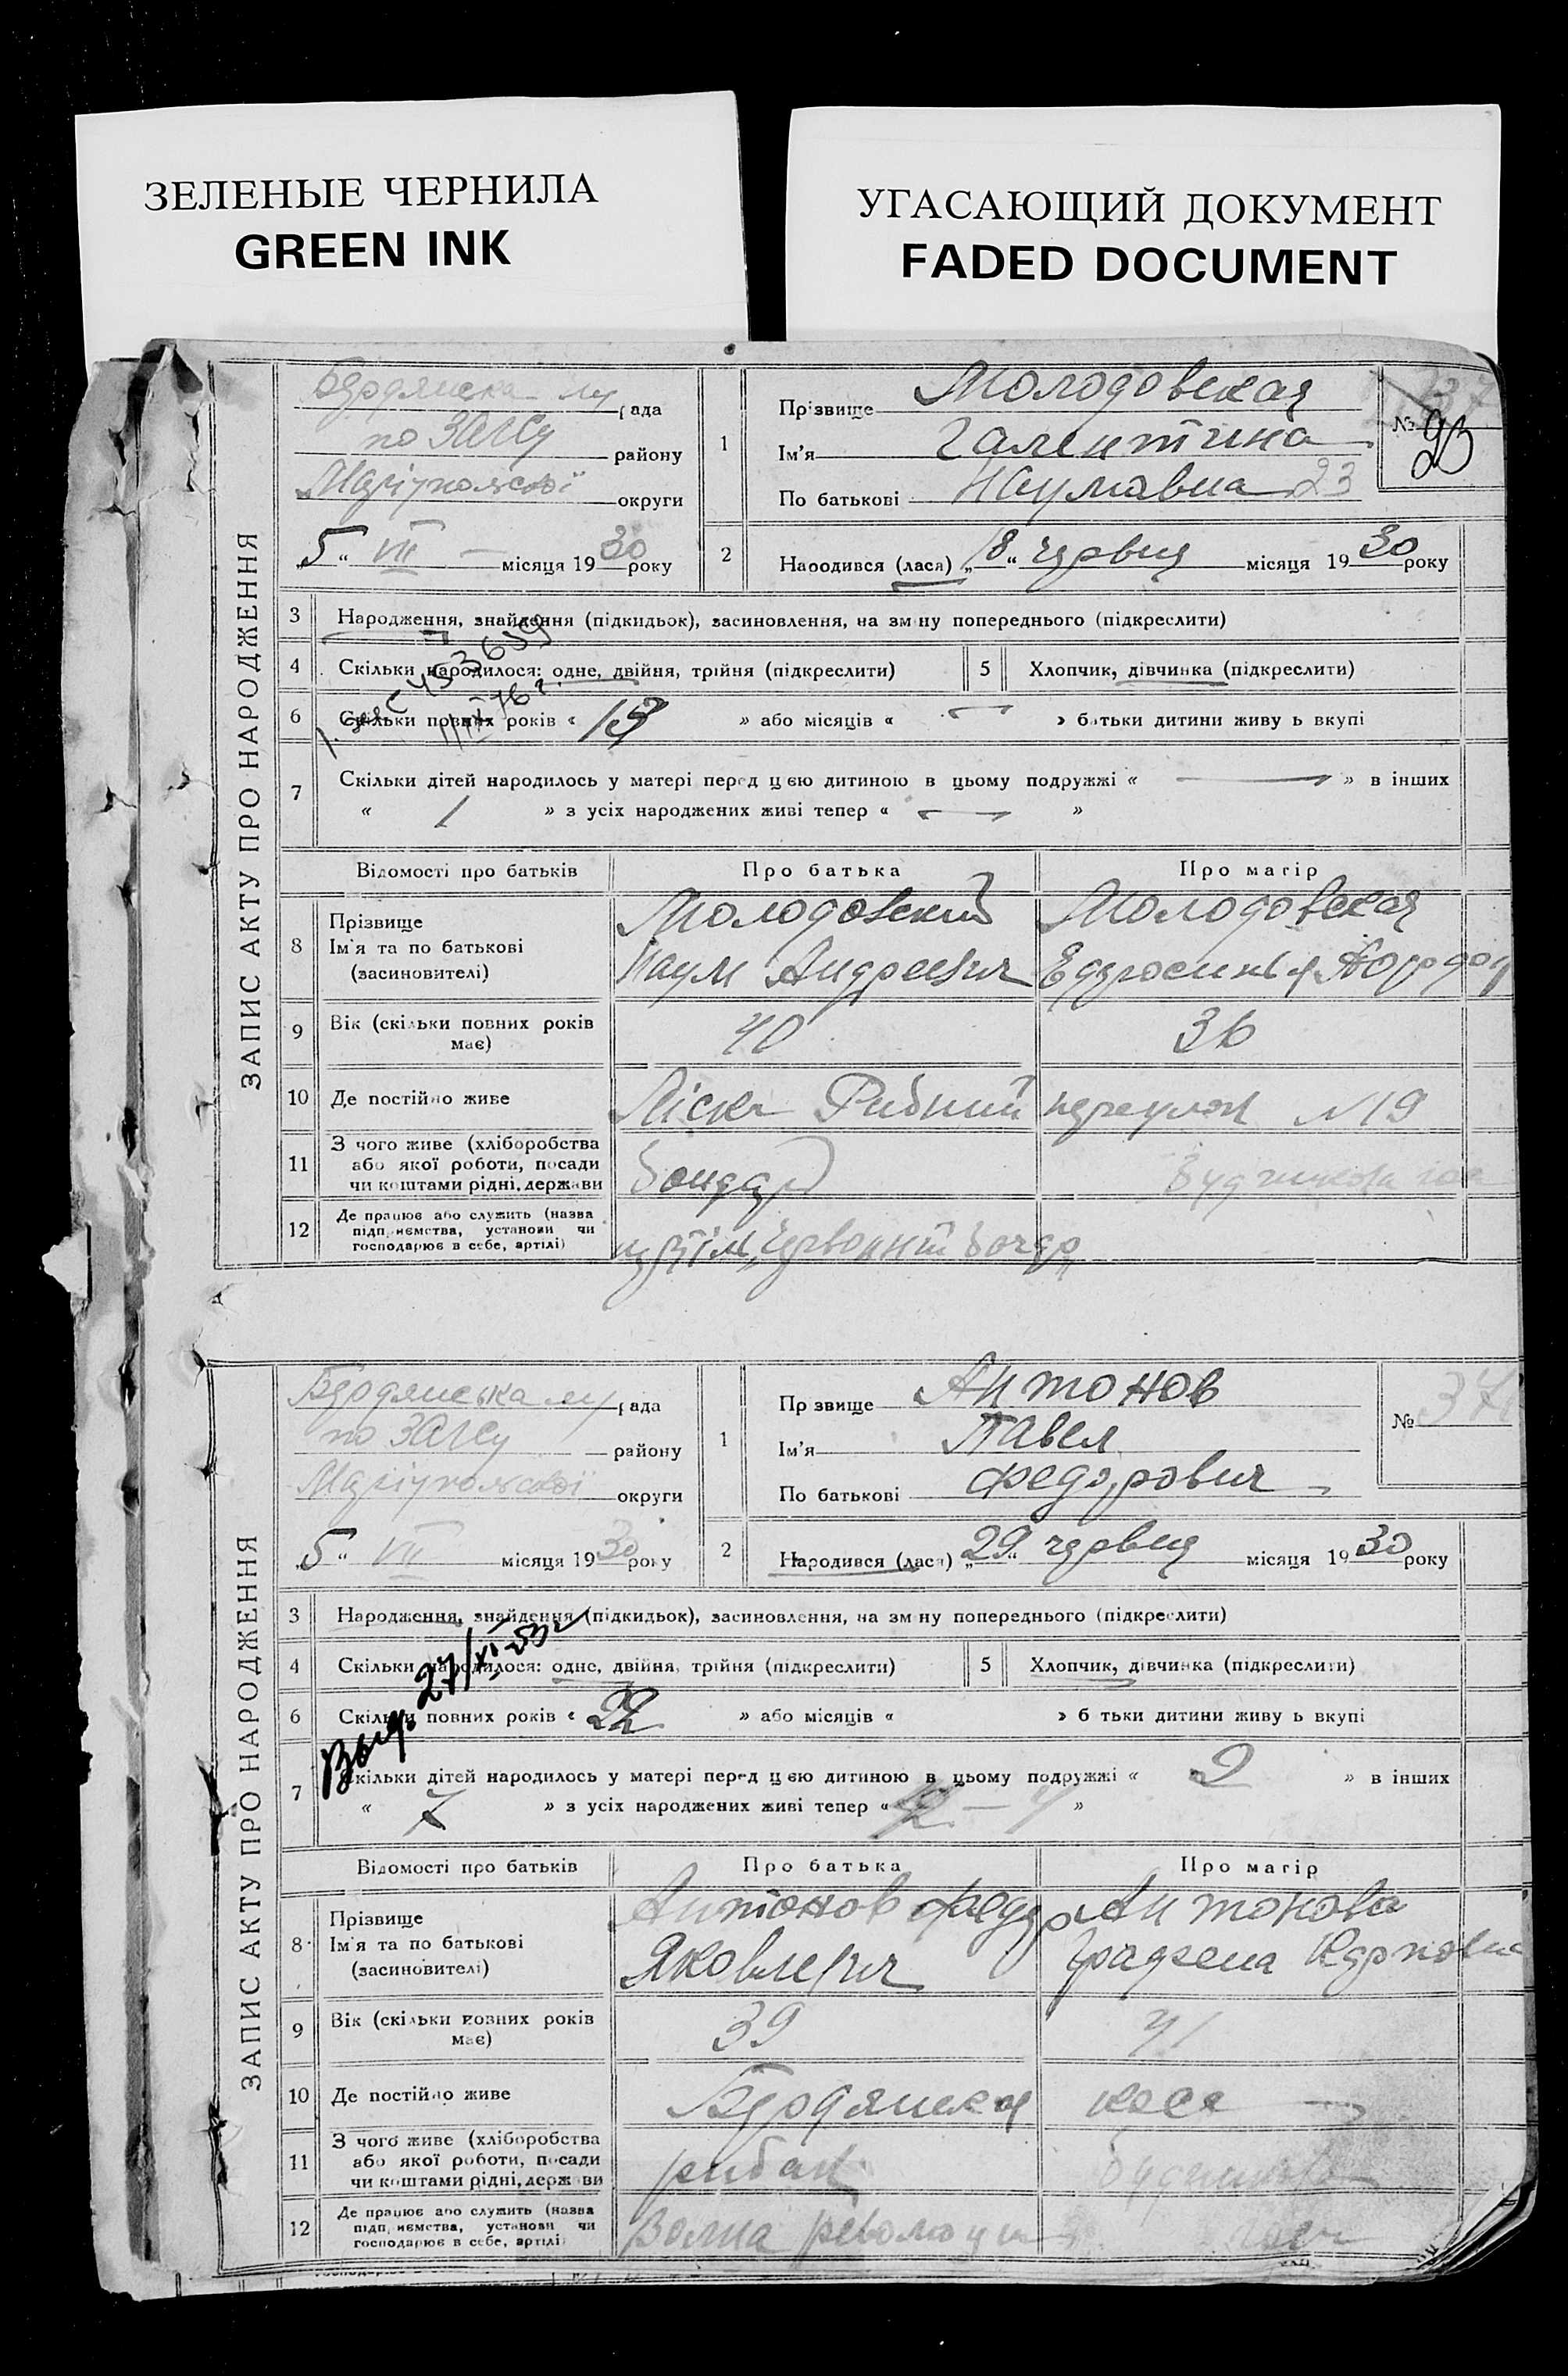 ЗЕЛЕНЫЕ ЧЕРНИЛА
GREEN INK
УГАСАЮЩИЙ ДОКУМЕНТ
FADED DOCUMENT
ЗАПИС АКТУ ПРО НАРОДЖЕННЯ
Бердянська рада
по ЗАГСу району
Маріупольської округи
5 " VII — місяця 1930 року
1
Прізвище Молодовская
Ім'я Галентина
По батькові Наумовна 23
№ 93
2
Народився (лася) „18" червня місяця 1930 року
3 Народження, знайдення (підкидьок), засиновлення, на зміну попереднього (підкреслити)
4 Скільки народилося: одне, двійня, трійня (підкреслити)
5 Хлопчик, дівчинка (підкреслити)
6 Скільки повних років « » або місяців « — » батьки дитини живуть вкупі
7 Скільки дітей народилось у матері перед цією дитиною в цьому подружжі « — » в інших
« 1 » з усіх народжених живі тепер « — »
Відомості про батьків Про батька Про матір
8 Прізвище Молодовский Молодовская
Ім'я та по батькові Наум Андреевич
(засновителі)
9 Вік (скільки повних років має) 40 36
10 Де постійно живе Ліски Рибний переулок N 19
11 З чого живе (хліборобства або якої роботи, посади чи коштами рідні, держави Бондар
12 Де працює або служить (назва підприємства, установи чи господарює в себе, артілі) "Червоний бондар"
ЗАПИС АКТУ ПРО НАРОДЖЕННЯ
Бердянська рада
по ЗАГСу району
Маріупольської округи
5 " VII місяця 1930 року
1
Прізвище Антонов
Ім'я Павел
По батькові Федорович
№ 37
2
Народився (лася) „29" червня місяця 1930 року
3 Народження, знайдення (підкидьок), засиновлення, на зміну попереднього (підкреслити)
Выд. 27/XI-53 г
4 Скільки народилося: одне, двійня, трійня (підкреслити)
5 Хлопчик, дівчинка (підкреслити)
6 Скільки повних років « 22 » або місяців « » батьки дитини живуть вкупі
7 Скільки дітей народилось у матері перед цією дитиною в цьому подружжі « 2 » в інших
« 7 » з усіх народжених живі тепер « »
Відомості про батьків Про батька Про матір
8 Прізвище Антонов Федор Антонова
Ім'я та по батькові Яковлевич Карповна
(засиновителі)
9 Вік (скільки повних років має) 39 41
10 Де постійно живе Бердянская коса
11 З чого живе (хліборобства або якої роботи, посади чи коштами рідні, держави рибак
12 Де працює або служить (назва підприємства, установи чи господарює в себе, артілі) Волна революции